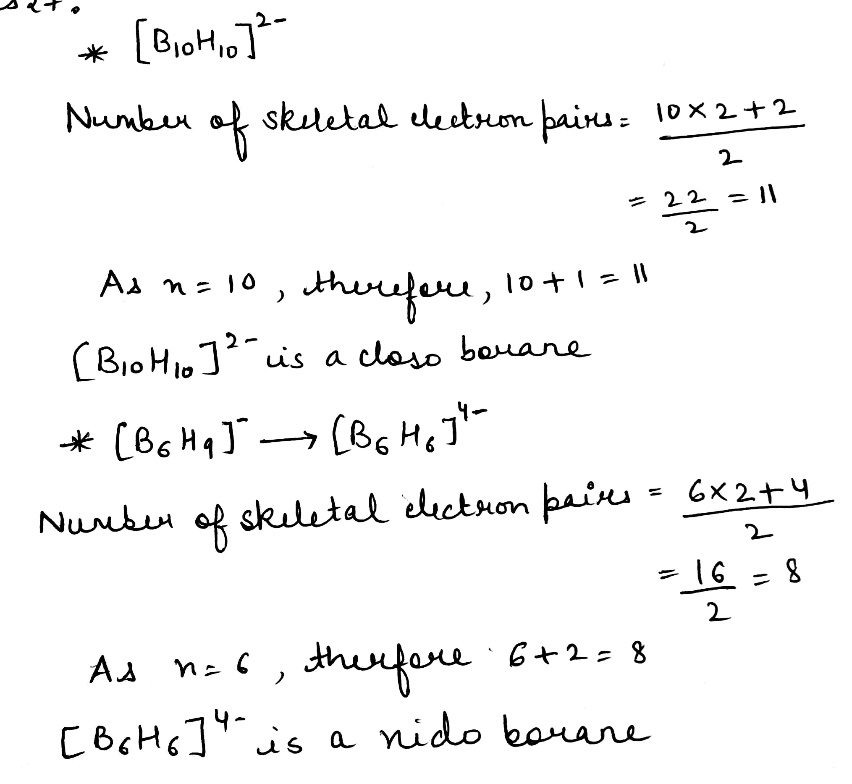 * [B10H10]2-
Number of skeletal electron pairs = 10×2+2 / 2
= 22 / 2 = 11
As n=10, therefore, 10+1=11
[B10H10]2- is a closo borane
* [B6H9]- → [B6H6]4-
Number of skeletal electron pairs = 6×2+4 / 2
= 16 / 2 = 8
As n=6, therfore 6+2=8
[B6H6]4- is a nido borane